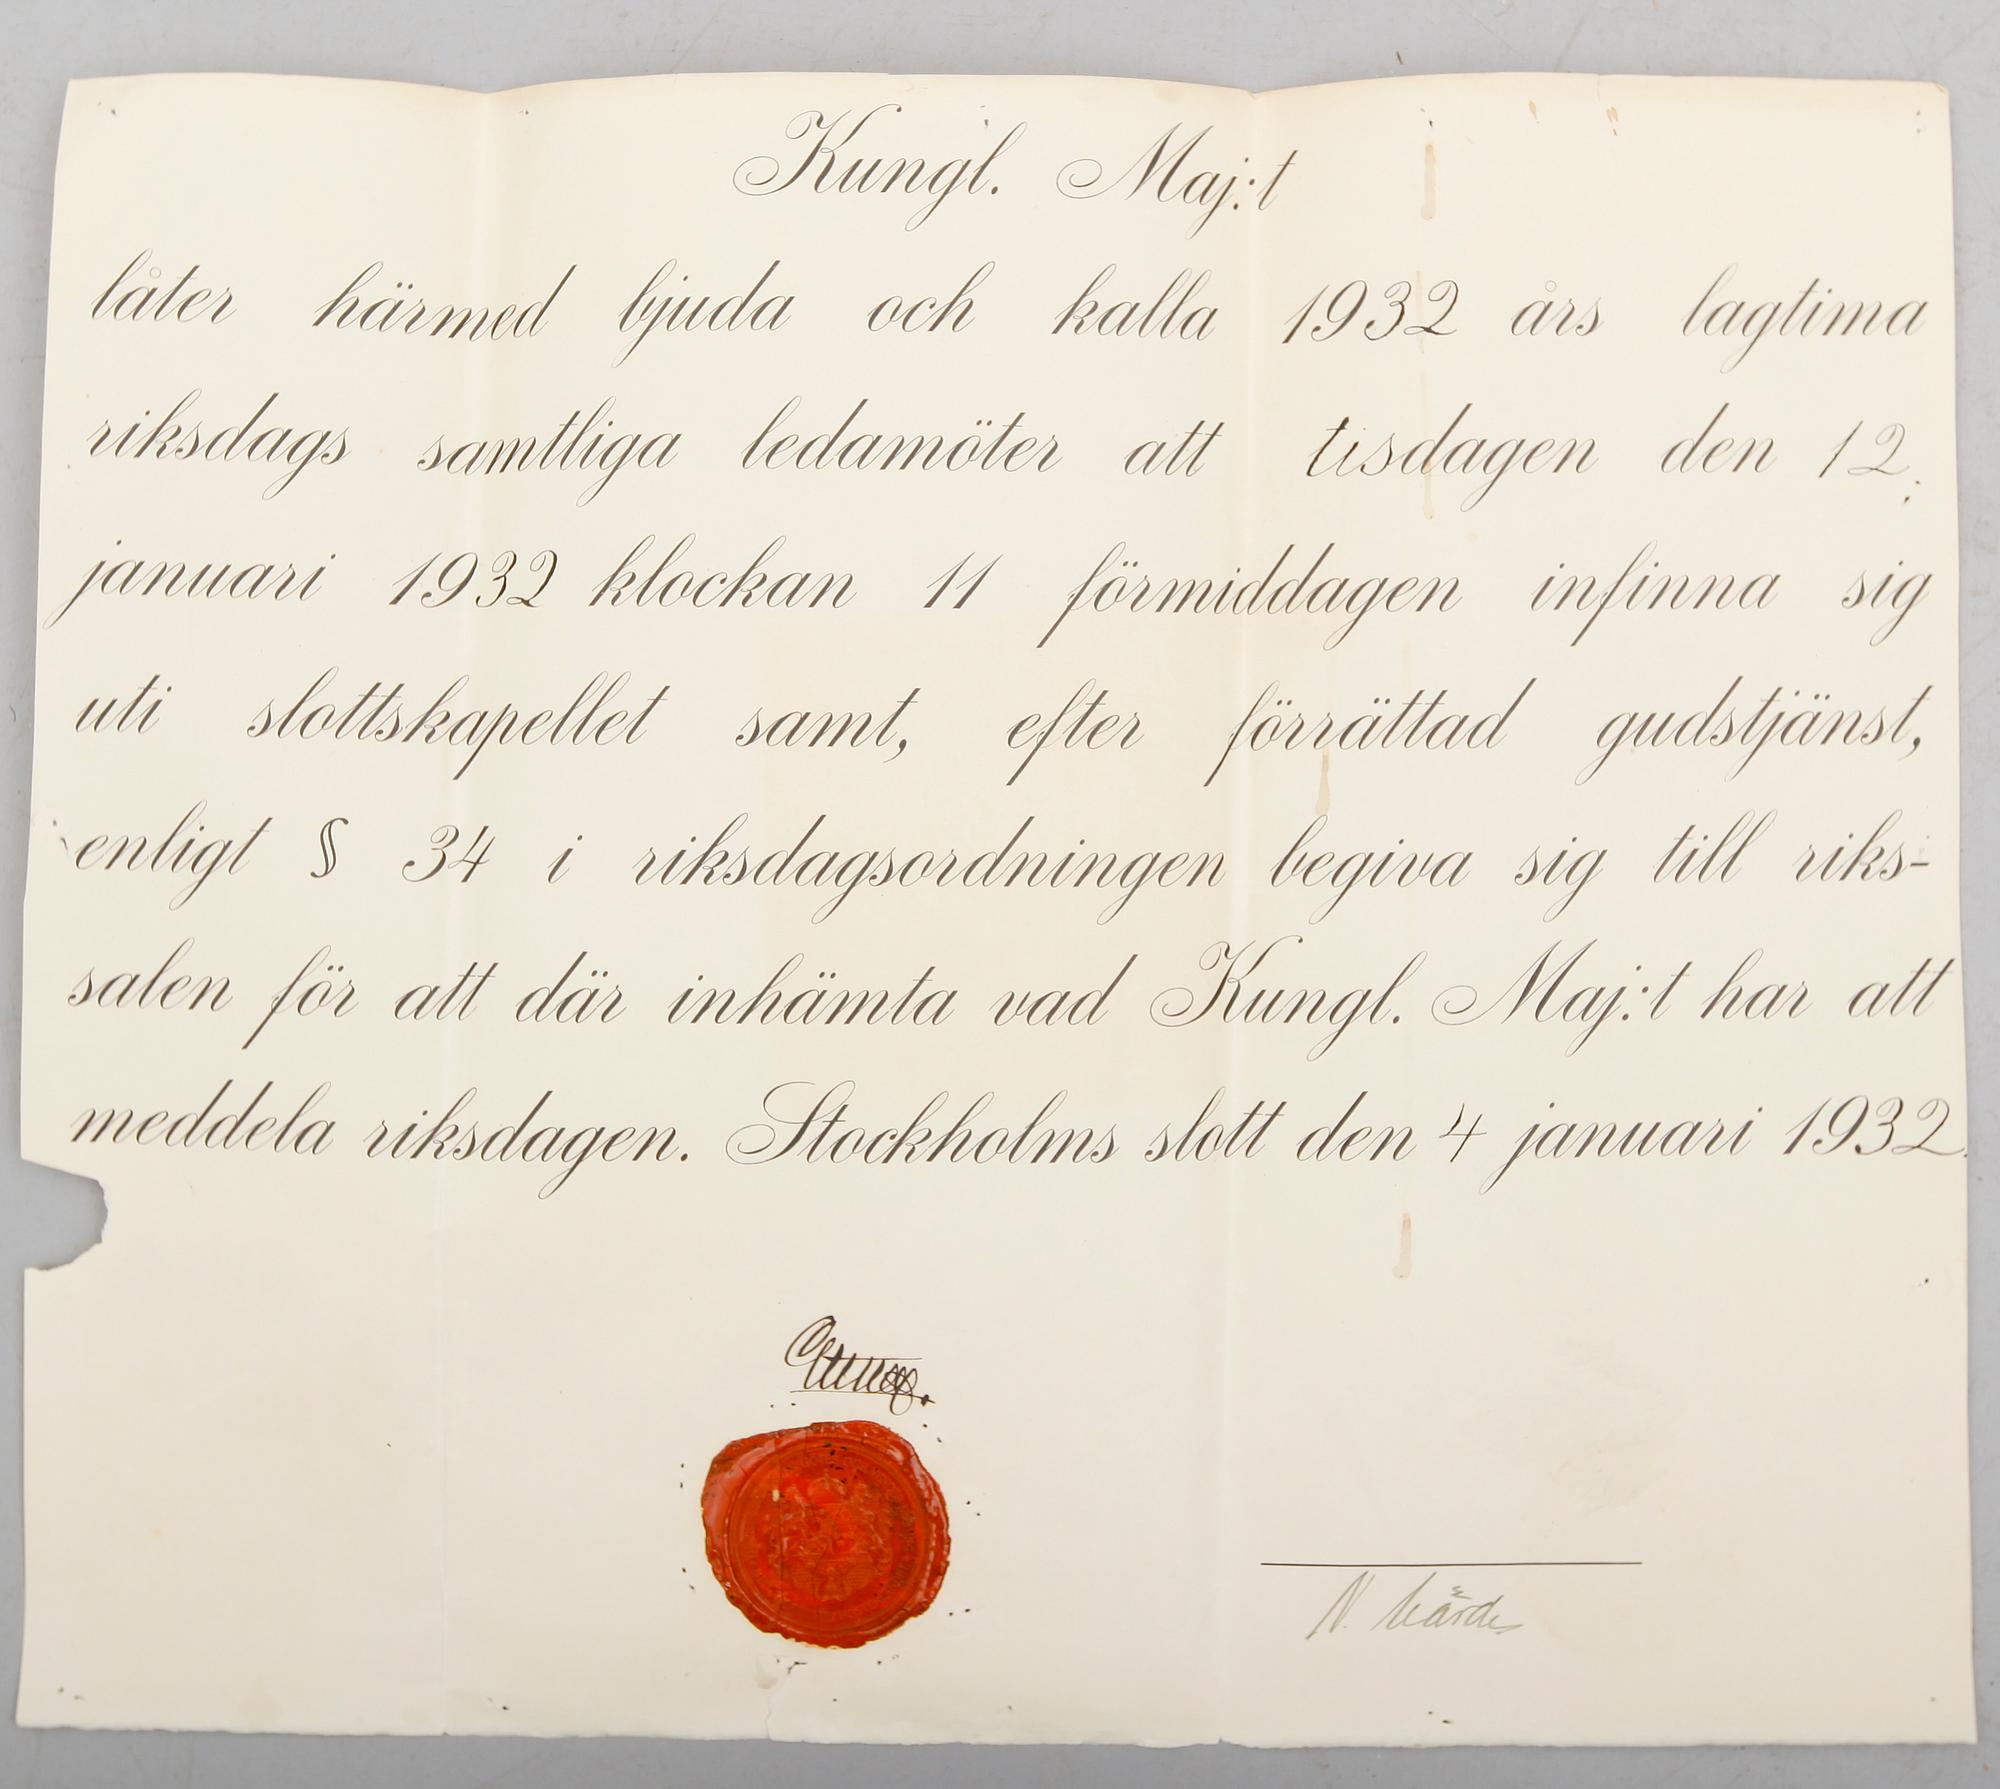 Kungl. Maj:t
låter härmed bjuda och kalla 1932 års lagtima
riksdags samtliga ledamöter att tisdagen den 12
januari 1932 klockan 11 förmiddagen infinna sig
uti slottskapellet samt, efter förrättad gudstjänst,
enligt § 34 i riksdagsordningen begiva sig till riks-
salen för att där inhämta vad Kungl. Maj:t har att
meddela riksdagen. Stockholms slott den 4 januari 1932.
N.